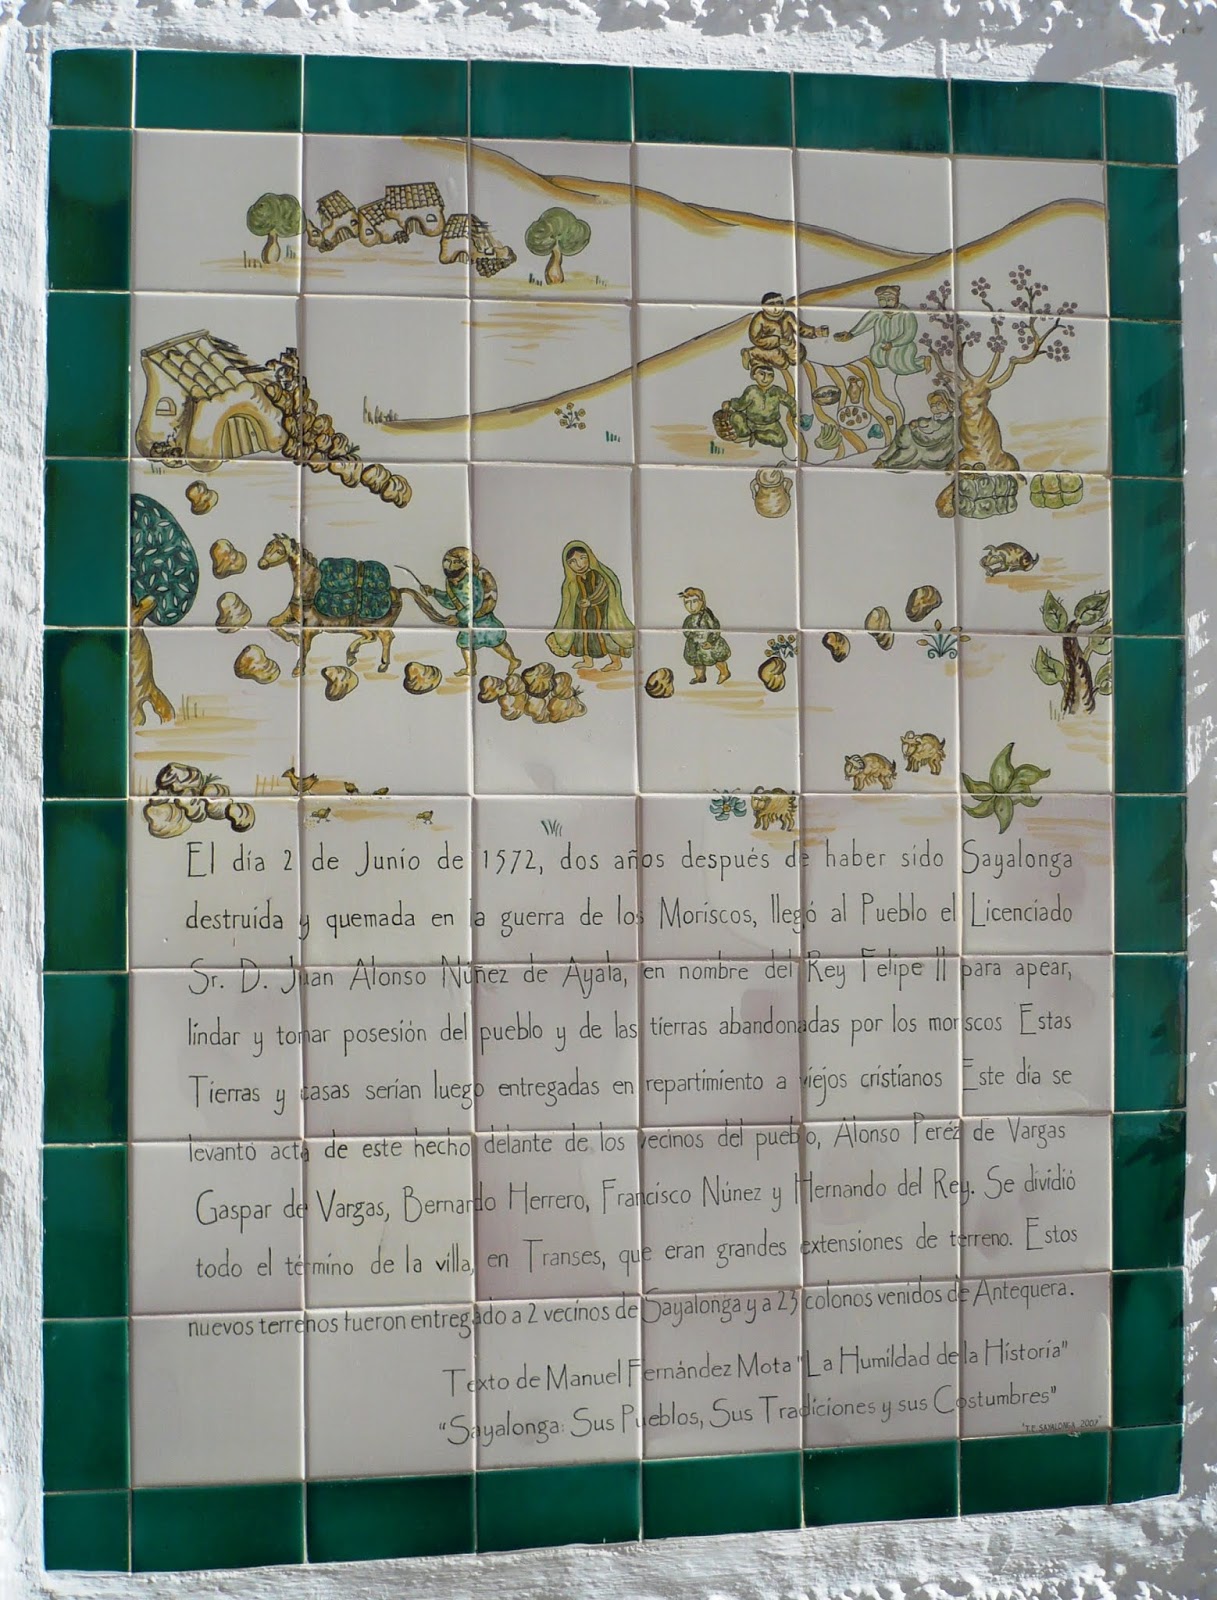 El día 2 de Junio de 1572, dos años después de haber sido Sayalonga
destruida y quemada en la guerra de los Moriscos, llegó al Pueblo el Licenciado
Sr. D. Juan Alonso Núñez de Ayala, en nombre del Rey Felipe II para apear,
lindar y tomar posesión del pueblo y de las tierras abandonadas por los moriscos Estas
Tierras y casas serían luego entregadas en repartimiento a viejos cristianos Este día se
levantó acta de este hecho delante de los vecinos del pueblo, Alonso Peréz de Vargas
Gaspar de Vargas, Bernardo Herrero, Francisco Núnez y Hernando del Rey. Se dividió
todo el término de la villa, en Transes, que eran grandes extensiones de terreno. Estos
nuevos terrenos fueron entregado a 2 vecinos de Sayalonga y a 23 colonos venidos de Antequera.
Texto de Manuel Fernández Mota "La Humildad de la Historia"
"Sayalonga: Sus Pueblos, Sus Tradiciones y sus Costumbres"
"T.E. SAYALONGA 2007"